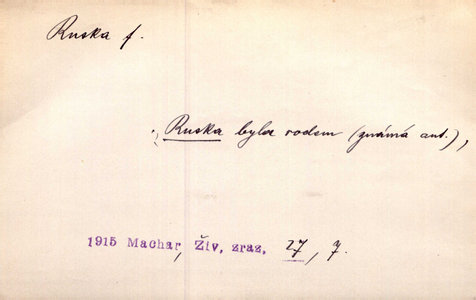 Ruska f.
Ruska byla rodem (známá aut.),
1915 Machar, Živ, zraz, 27, 7.